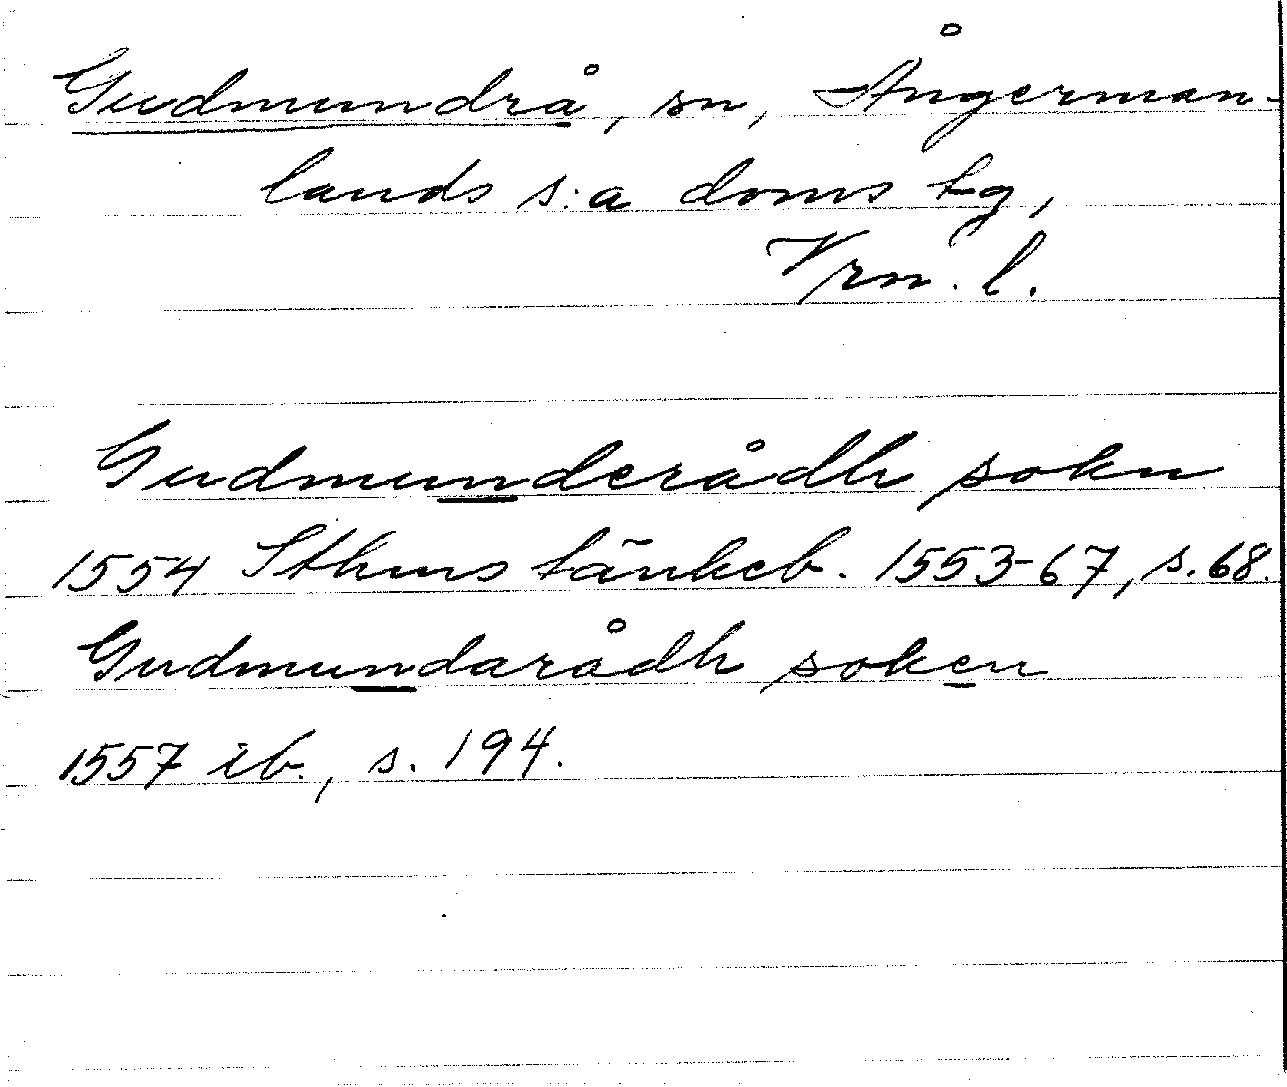 Gudmundrå, sn, Ångerman-
lands s:a doms tg,
Vrn. l.
Gudmunderådh sokn
1554 Sthms tänkeb. 1553-67, s. 68.
Gudmundarådh soken
1557 ib., s. 194.